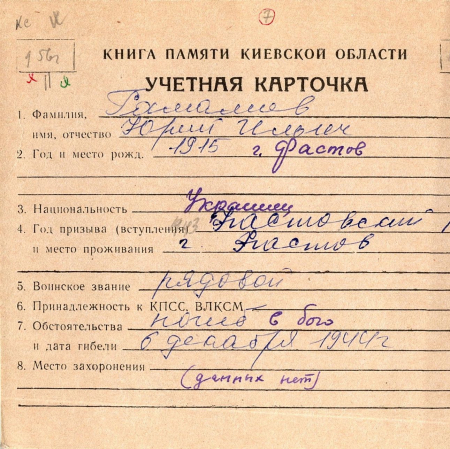 7
КНИГА ПАМЯТИ КИЕВСКОЙ ОБЛАСТИ
УЧЕТНАЯ КАРТОЧКА
1. Фамилия,
имя, отчество Юрий Ильич
2. Год и место рожд. 1915 г. Фастов
3. Национальность Украинец
4. Год призыва (вступления) Фастовский
и место проживания г. Фастов
5. Воинское звание рядовой
6. Принадлежность к КПСС, ВЛКСМ —
7. Обстоятельства погиб в бою
и дата гибели 6 декабря 1944 г
8. Место захоронения
(данных нет)